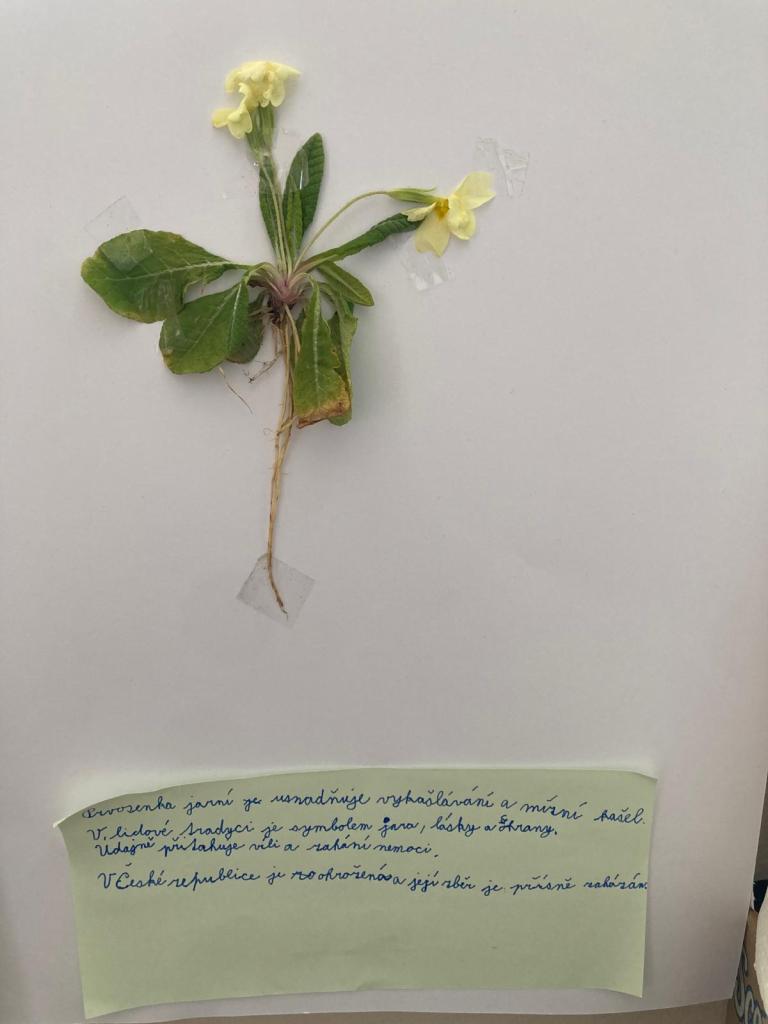 Prvosenka jarní je usnadňuje vykašlávání a mírní kašel.
V lidové tradyci je symbolem jara, lásky a ochrany.
Údajně přitahuje víli a zahání nemoci.
V České republice je ohrožená a její zběr je přísně zakázán